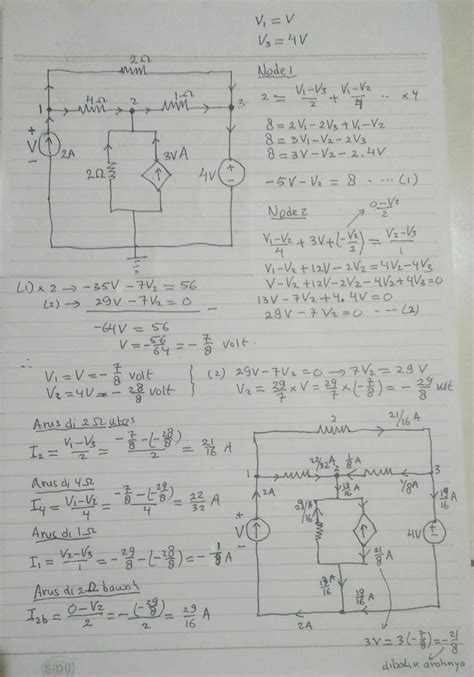 V₁ = V
V₃ = 4V
2Ω
1
4Ω
2
1Ω
3
+
V
-
2A
2Ω
3V A
4V
+
-
Node 1
2 = (V₁-V₃)/2 + (V₁-V₂)/4 ... ×4
8 = 2V₁-2V₃+V₁-V₂
8 = 3V₁-V₂-2V₃
8 = 3V-V₂-2.4V
-5V-V₂ = 8 .... (1)
Node 2
(0-V₂)/2
(V₁-V₂)/4 + 3V + (-V₂/2) = (V₂-V₃)/1
V₁-V₂+12V-2V₂ = 4V₂-4V₃
V-V₂+12V-2V₂-4V₂+4V₃=0
13V-7V₂+4.4V=0
29V-7V₂=0 ... (2)
(1) × 2 → -35V-7V₂ = 56
(2) → 29V-7V₂ = 0
-64V = 56
V = -56/64 = -7/8 volt.
∴
V₁ = V = -7/8 volt
V₂ = 4V = -28/8 volt
(2) 29V-7V₂=0 → 7V₂ = 29V
V₂ = 29/7 × V = 29/7 × (-7/8) = -29/8 volt
Arus di 2Ω atas
I₂ = (V₁-V₃)/2 = (-7/8-(-28/8))/2 = 21/16 A
Arus di 4Ω
I₄ = (V₁-V₂)/4 = (-7/8-(-29/8))/4 = 22/32 A
Arus di 1Ω
I₁ = (V₂-V₃)/1 = -29/8-(-28/8) = -1/8 A
Arus di 2Ω bawah
I₂b = (0-V₂)/2 = -(-29/8)/2 = 29/16 A
2
21/16 A
1
22/32 A
2
1/8 A
3
1/8 A
2A
13/16 A
19/16 A
V
29/16 A
21/8 A
4V
+
-
13/16 A
19/16 A
2A
3V = 3(-7/8) = -21/8
dibalik arahnya
SIDU